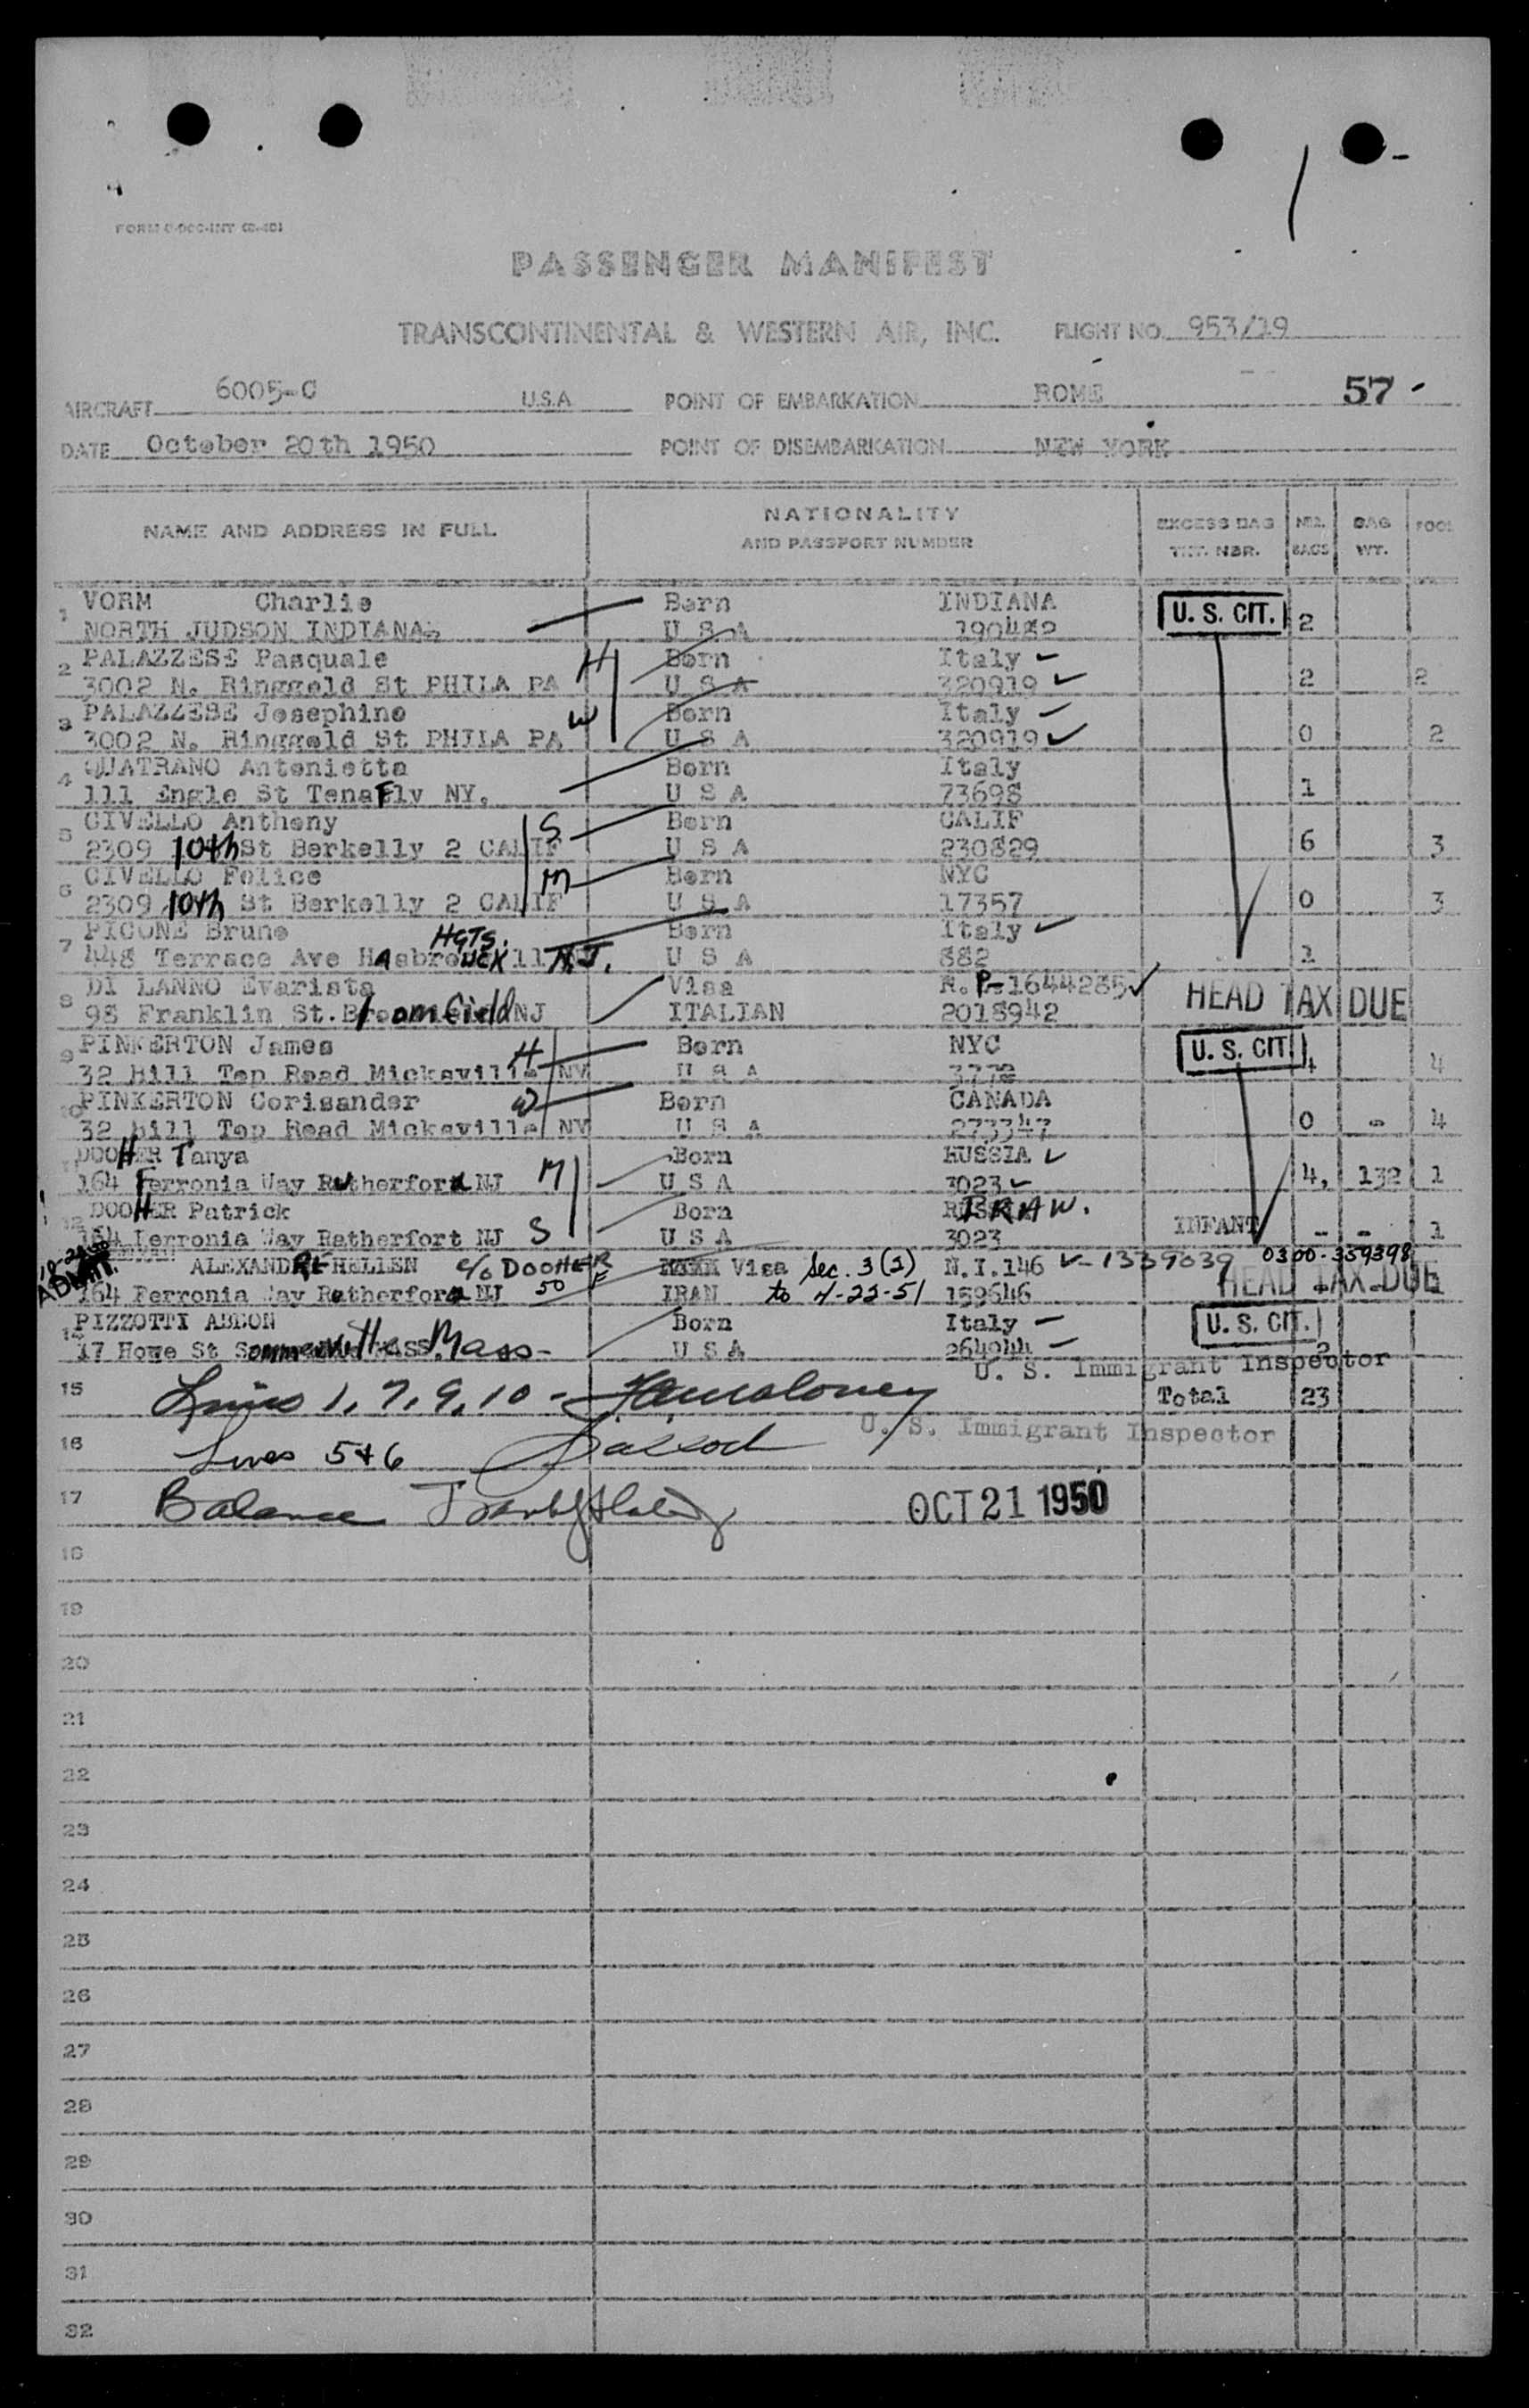 PASSENGER MANIFEST
TRANSCONTINENTAL & WESTERN AIR, INC. FLIGHT NO. 953/19
AIRCRAFT 6005-C U.S.A POINT OF EMBARKATION ROME 57 -
DATE October 20th 1950 POINT OF DISEMBARKATION NEW YORK
NAME AND ADDRESS IN FULL NATIONALITY AND PASSPORT NUMBER EXCESS BAG TKT. NBR. NBR. BAGS BAG WT. FOOL
1 VORM Charlie Born INDIANA U. S. CIT.
NORTH JUDSON INDIANA U S A 190482 2
2 PALAZZESE Pasquale H Born Italy
3002 N. Ringgold St PHILA PA U S A 320919 2 2
3 PALAZZESE Josephine W Born Italy
3002 N. Ringgold St PHILA PA U S A 320919 0 2
4 QUATRANO Antonietta Born Italy
111 Engle St TenaFly NY. U S A 73698 1
5 CIVELLO Anthony S Born CALIF
2309 10th St Berkelly 2 CALIF U S A 230829 6 3
6 CIVELLO Felice M Born NYC
2309 10th St Berkelly 2 CALIF U S A 17357 0 3
7 PICONE Bruno HGTS. Born Italy
448 Terrace Ave N.J. U S A 882 1
8 Di LANNO Evarista Visa P-1644285
98 Franklin St. Bloomfield NJ ITALIAN 2018942 HEAD TAX DUE
9 PINKERTON James H Born NYC U. S. CIT.
32 Hill Top Road Micksville NY U S A 3772 4 4
10 PINKERTON Corisander W Born CANADA
32 Hill Top Road Micksville NY U S A 273347 0 - 4
11 DOOHER Tanya M Born RUSSIA
164 Ferronia Way Rutherford NJ U S A 3023 4, 132 1
12 DOOHER Patrick S Born IRAN
164 Ferronia Way Ratherfort NJ U S A 3023 INFANT - - 1
ADMIT. ALEXANDRE HELLEN c/o DOOHER Visa Sec. 3(2) N.I.146 V-1339639 0300-359398
164 Ferronia Way Rutherford NJ 50 F IRAN to 4-22-51 159646 HEAD TAX DUE
14 PIZZOTTI ABDON Born Italy U. S. CIT.
17 Howe St Sommerville Mass- U S A 264944 2
U. S. Immigrant Inspector
15 Lines 1, 7, 9, 10 - Total 23
U. S. Immigrant Inspector
16 Lines 5+6
17 Balance OCT 21 1950
18
19
20
21
22
23
24
25
26
27
28
29
30
31
32